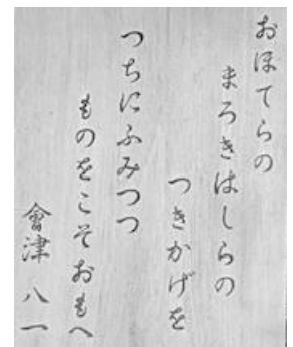 おほてらの
まろきはしらの
つきかげを
つちにふみつつ
ものをこそおもへ
會津 八一